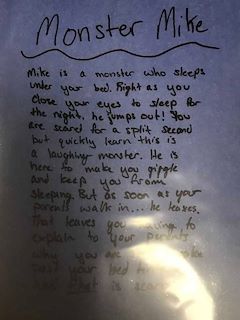 Monster Mike
Mike is a monster who sleeps
under your bed. Right as you
close your eyes to sleep for
the night, he jumps out! You
are scared for a split second
but quickly learn this is
a laughing monster. He is
here to make you giggle
and keep you from
sleeping. But as soon as your
parents walk in... he leaves.
That leaves you having to
explain to your parents
why you are
past your bed
that is